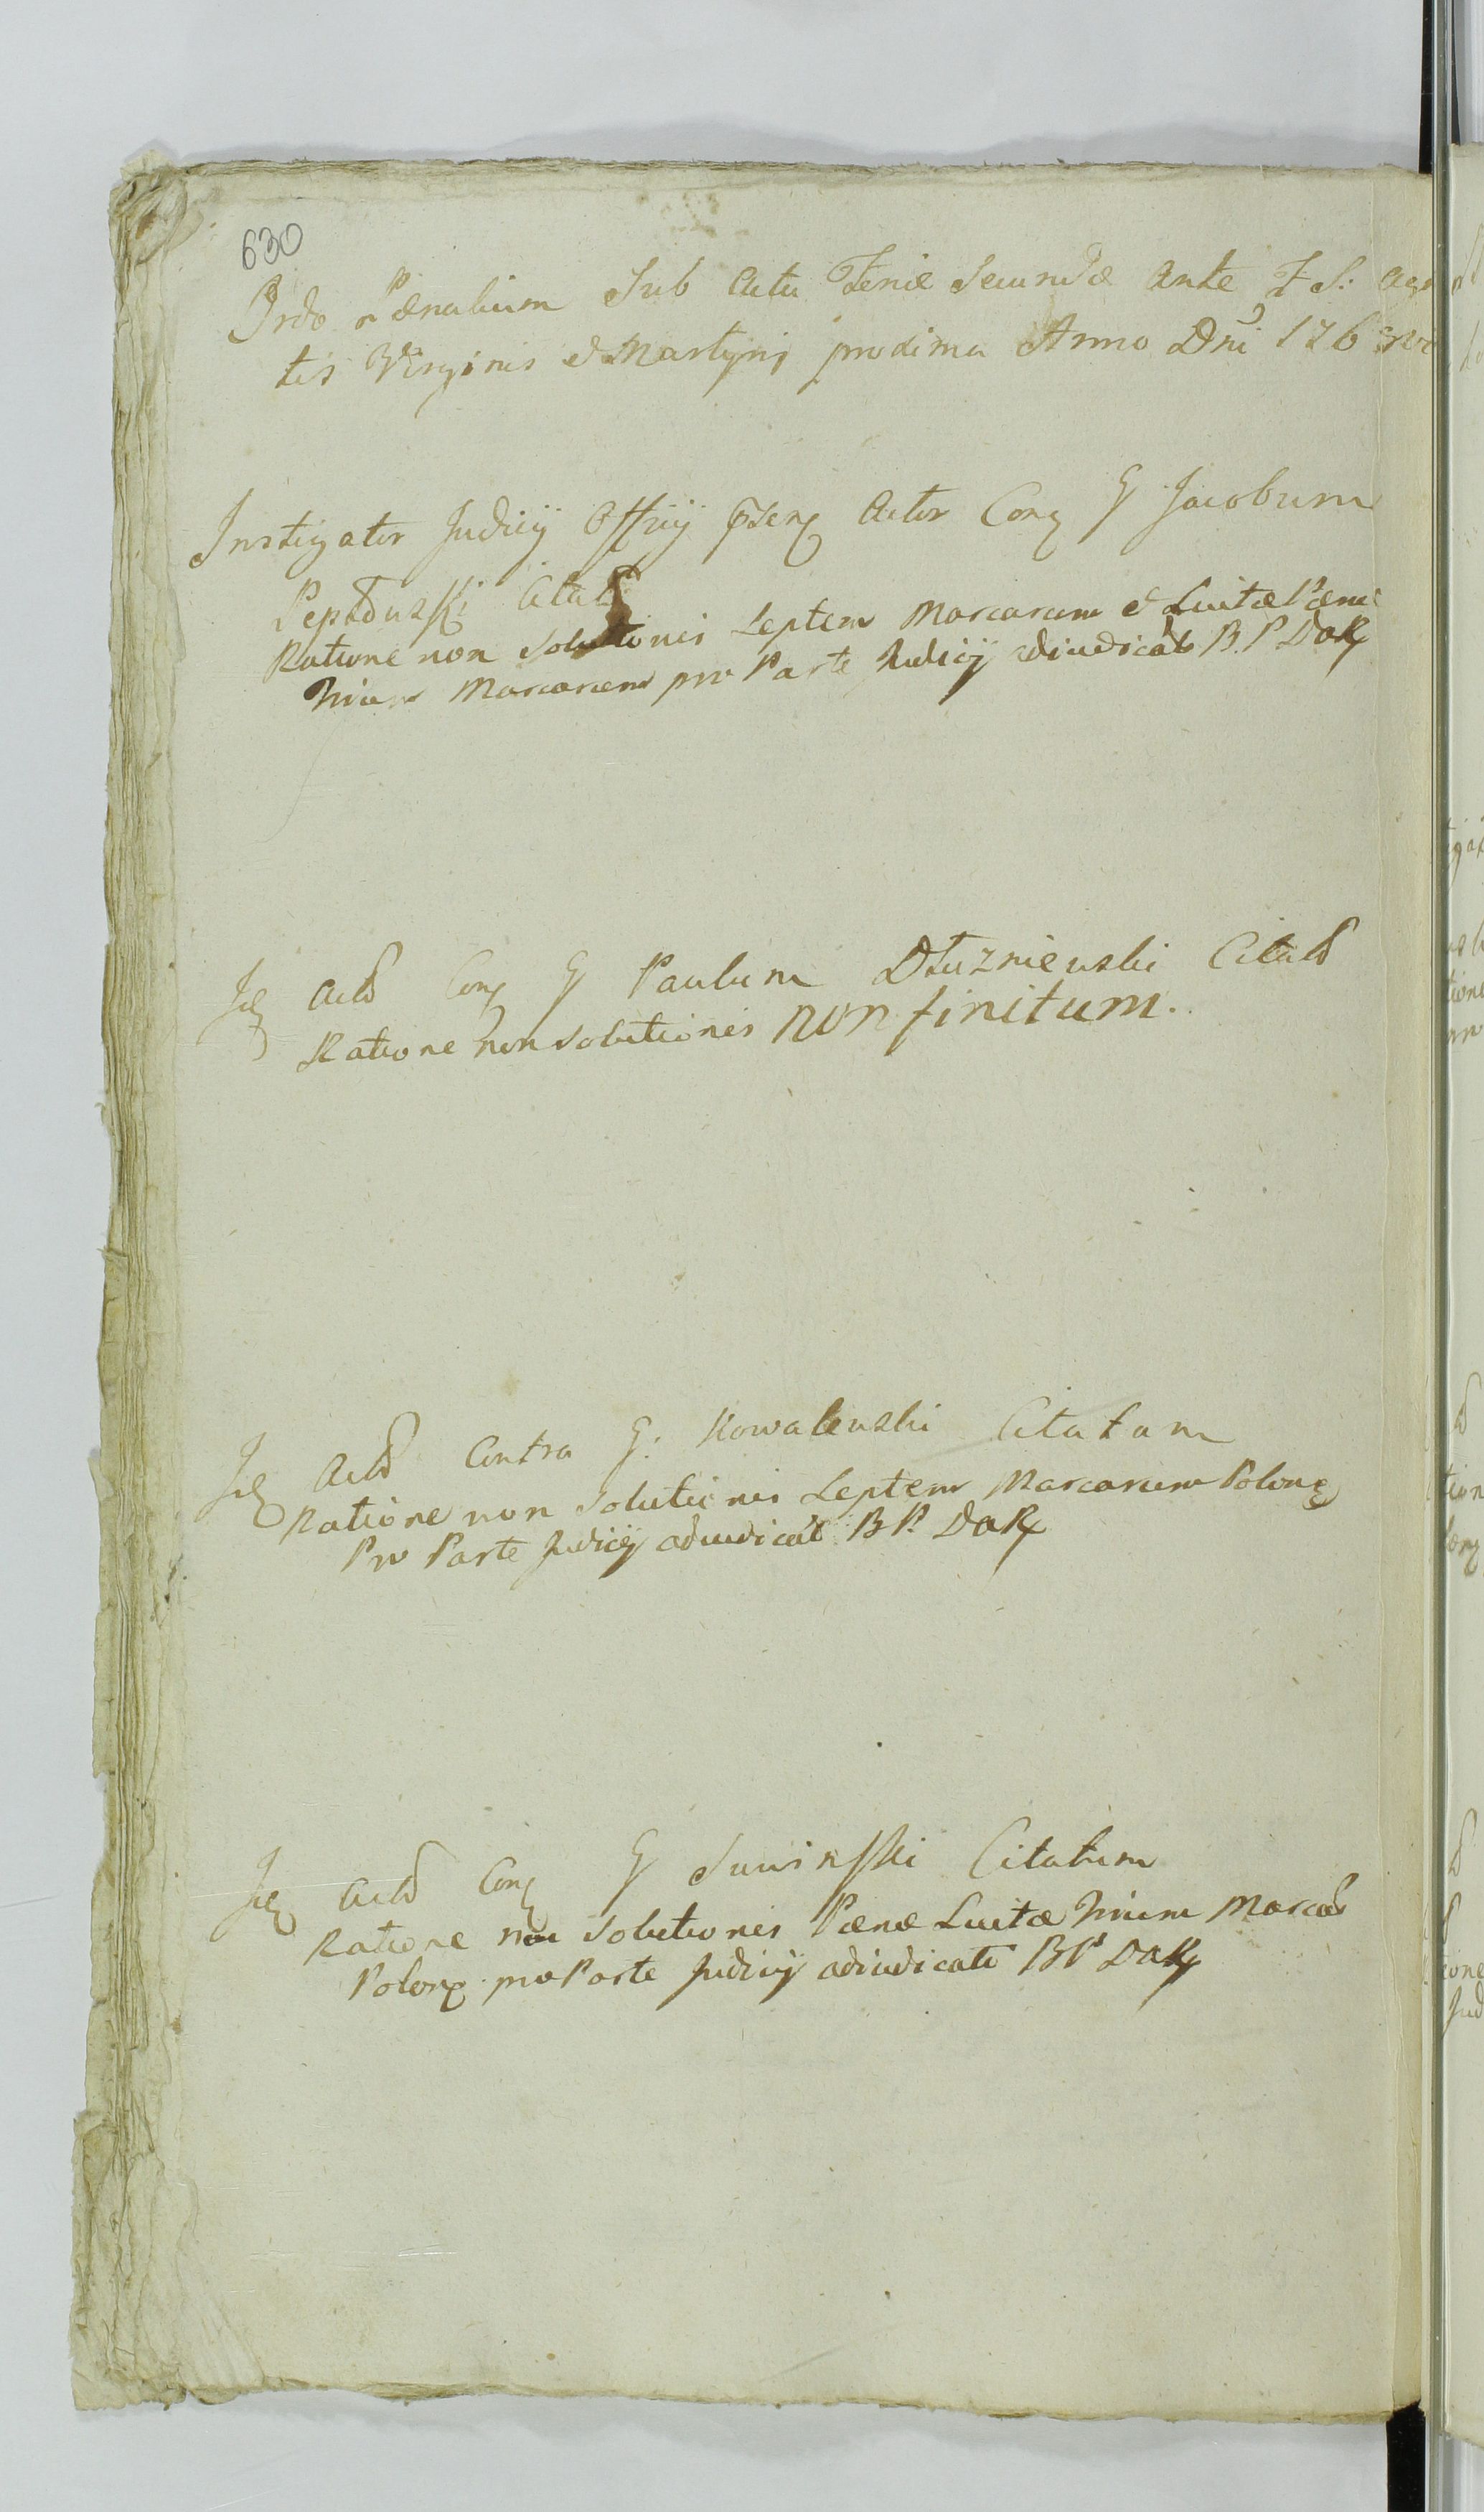 630
Ordo Pænalium Sub Actu Feriæ Secundæ Ante F S: Aga
tis Virginis et Martyris proxima Anno Dni 176
Instigator Judicij Officij Actor Con G Jacobum
Citat
Ratione non Solutionis Septem Marcarum et Luitæ Pænæ
Trium Marcarum pro Parte Judicij adiudicat B. P. DaR
Id Actor Con G Paulum Dłuzniewski Citat
Ratione non Solutionis non finitum.
Id Actor Contra G: Kowalewski Citatum
Ratione non Solutionis Septem Marcarum Polon
Pro Parte Judicij adiudicat B P. DaR
Id Actor Con G Citatum
Ratione non Solutionis Pænæ Luitæ Trium Marcar
Polon pro Parte Judicij adiudicat B P DaR